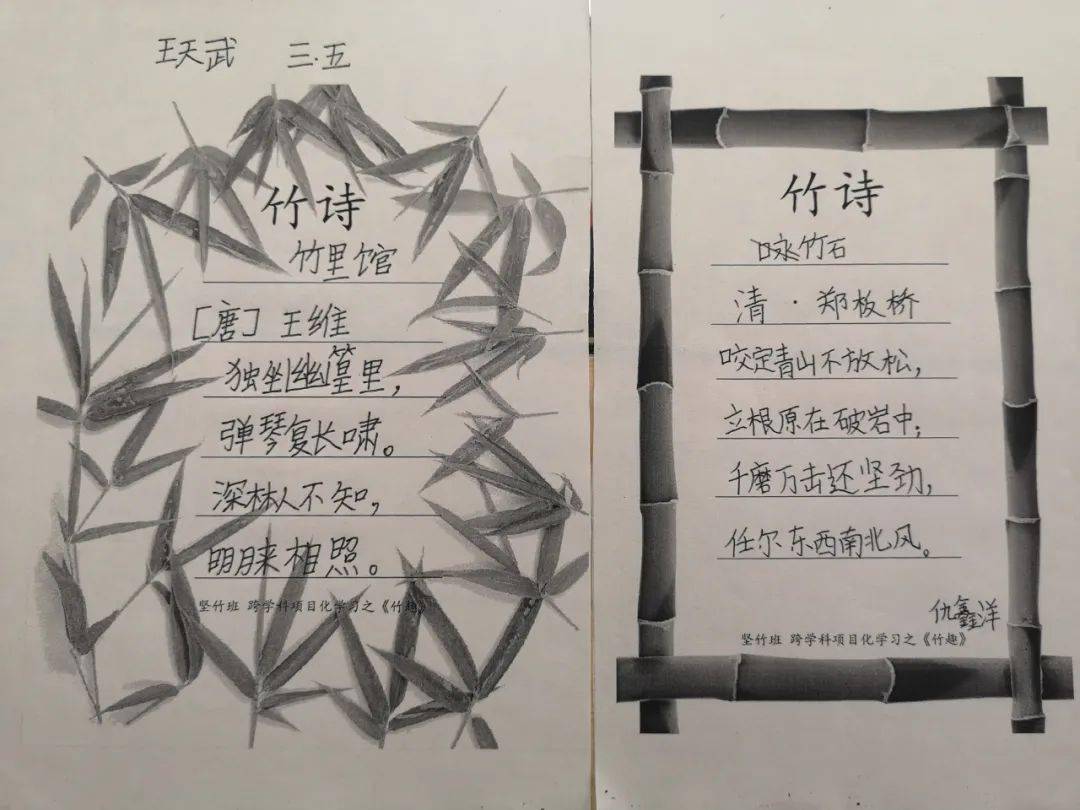 王天武 三.五
竹诗
竹里馆
[唐] 王维
独坐幽篁里，
弹琴复长啸。
深林人不知，
明月来相照。
坚竹班 跨学科项目化学习之《竹趣》
竹诗
咏竹石
清·郑板桥
咬定青山不放松，
立根原在破岩中；
千磨万击还坚劲，
任尔东西南北风。
仇鑫洋
坚竹班 跨学科项目化学习之《竹趣》